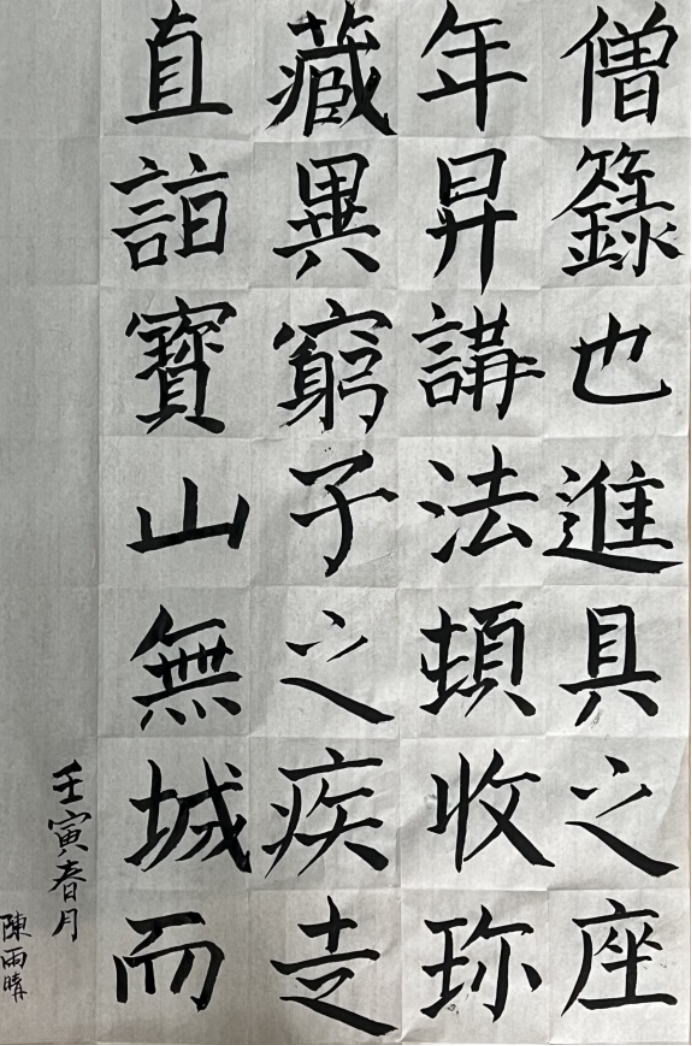 僧籙也進具之座
年昇講法頓收珍
藏異窮子之疾走
直詣寶山無城而
壬寅春月
陳雨晴